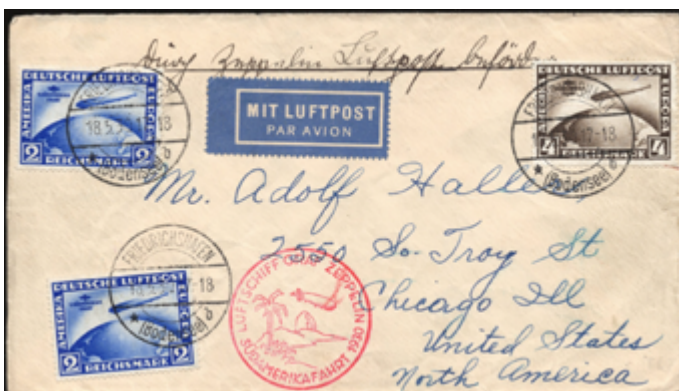 durch Zeppelin Luftpost beförd
DEUTSCHE LUFTPOST
AMERIKA
EUROPA
2 REICHSMARK 2
18.5.
-18
(Bodensee)
MIT LUFTPOST
PAR AVION
DEUTSCHE LUFTPOST
AMERIKA
EUROPA
4 REICHSMARK 4
17-18
(Bodensee)
Mr. Adolf Halle
2550 So. Troy St
Chicago Ill
United States
North America
FRIEDRICHSHAFEN
-18
(Bodensee)
DEUTSCHE LUFTPOST
AMERIKA
EUROPA
2 REICHSMARK 2
LUFTSCHIFF GRAF ZEPPELIN
SÜDAMERIKAFAHRT 1930